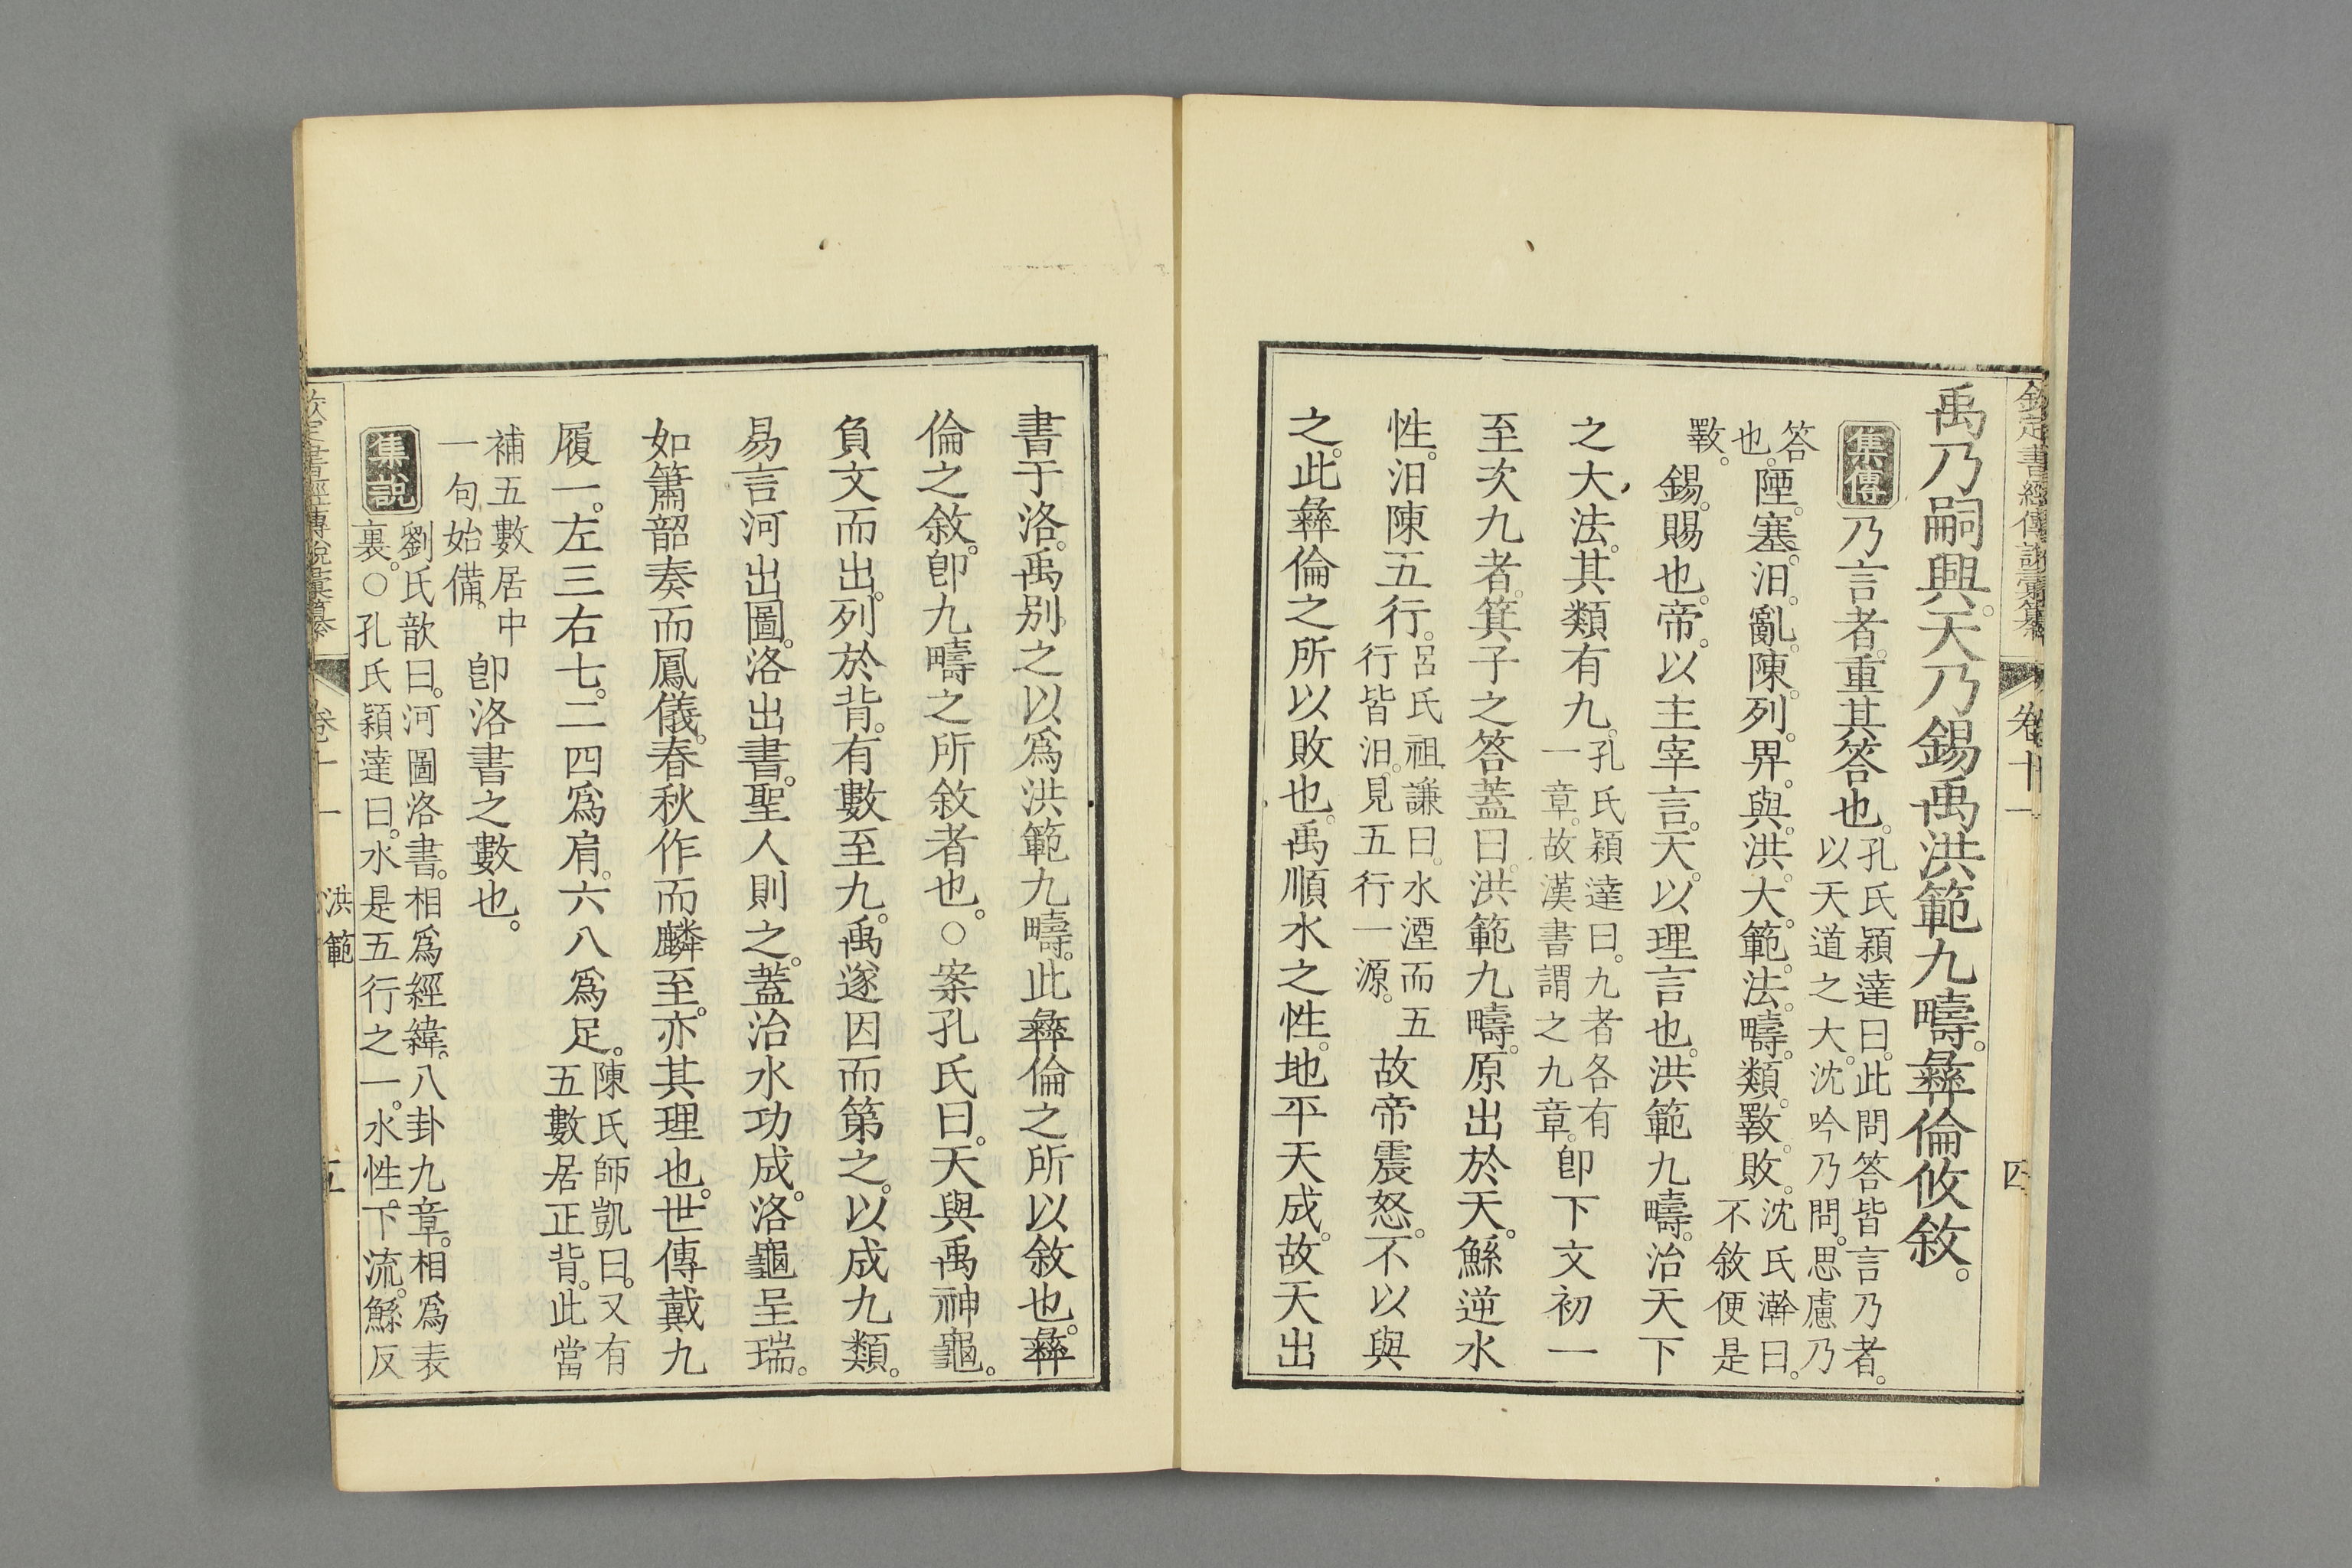 欽定書經傳說彙纂 卷十一 四
禹乃嗣興。天乃錫禹洪範九疇。彝倫攸敘。
集傳 乃言者。重其答也。孔氏穎達曰。此問答皆言乃者。
以天道之大。沈吟乃問。思慮乃
答
也。陻。塞。汩。亂。陳。列。畀。與。洪。大。範。法。疇。類。斁。敗。沈氏澣曰。
不敘便是
斁。錫。賜也。帝。以主宰言。天。以理言也。洪範九疇。治天下
之大法。其類有九。孔氏穎達曰。九者各有
一章。故漢書謂之九章。卽下文初一
至次九者。箕子之答。蓋曰。洪範九疇。原出於天。鯀逆水
性。汩陳五行。呂氏祖謙曰。水湮而五
行皆汩。見五行一源。故帝震怒。不以與
之。此彝倫之所以敗也。禹順水之性。地平天成。故天出
書于洛。禹別之以爲洪範九疇。此彝倫之所以敘也。彝
倫之敘。卽九疇之所敘者也。○案孔氏曰。天與禹神龜。
負文而出。列於背。有數至九。禹遂因而第之。以成九類。
易言河出圖。洛出書。聖人則之。蓋治水功成。洛龜呈瑞。
如簫韶奏而鳳儀。春秋作而麟至。亦其理也。世傳戴九
履一。左三右七。二四爲肩。六八爲足。陳氏師凱曰。又有
五數居正背。此當
補五數居中
一句始備。卽洛書之數也。
集說 劉氏歆曰。河圖洛書。相爲經緯。八卦九章。相爲表
裏。○孔氏穎達曰。水是五行之一。水性。下流。鯀反
欽定書經傳說彙纂 卷十一 洪範 五